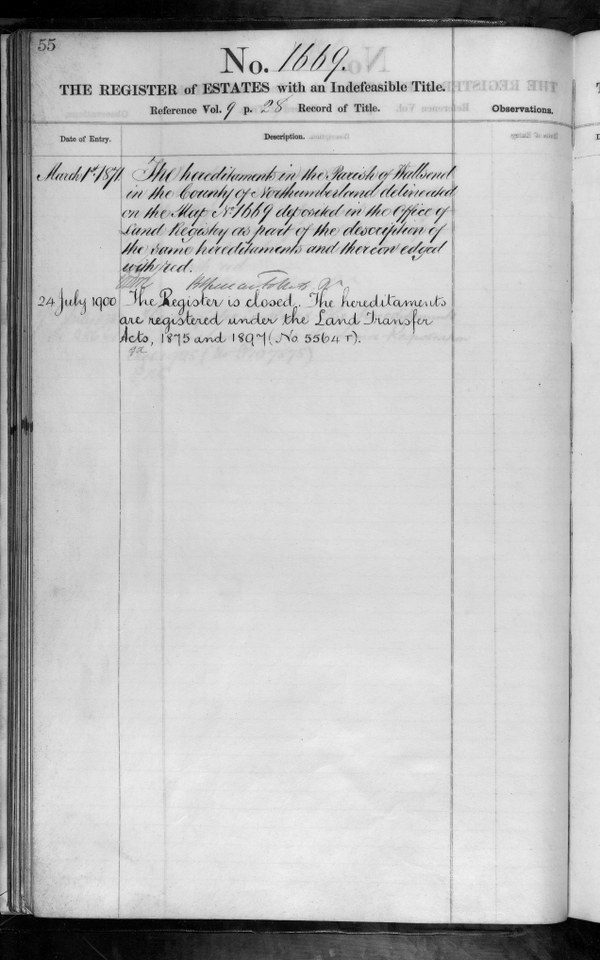 55
No. 1669.
THE REGISTER of ESTATES with an Indefeasible Title.
Reference Vol. 9 p. 28 Record of Title.
Observations.
Date of Entry.
Description.
March 1st. 1871
The hereditaments in the Parish of Wallsend
in the County of Northumberland delineated
on the Map No 1669 deposited in the Office of
Land Registry as part of the description of
the same hereditaments and thereon edged
with red.
24 July 1900
The Register is closed. The hereditaments
are registered under the Land Transfer
Acts, 1875 and 1897 (No. 5564 T).